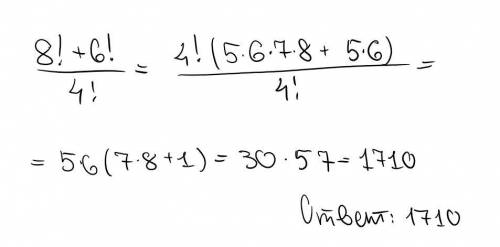 (8! + 6!)/4! = 4!(5·6·7·8 + 5·6)/4! =
= 5·6(7·8+1) = 30·57 = 1710
Ответ: 1710